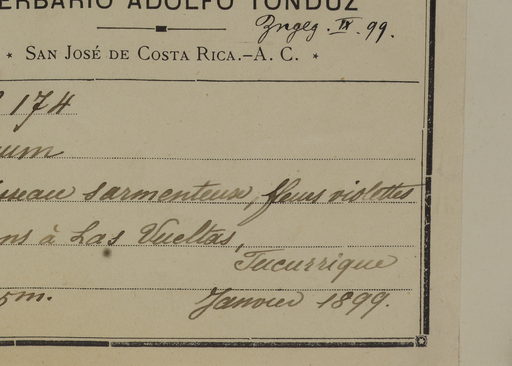 ERBARIO ADOLFO TONDUZ
IX. 99.
* SAN JOSÉ DE COSTA RICA.-A. C. *
174
sarmenteux, fleurs violettes
ns à Las Vueltas,
Tucurrique
5m. Janvier 1899.